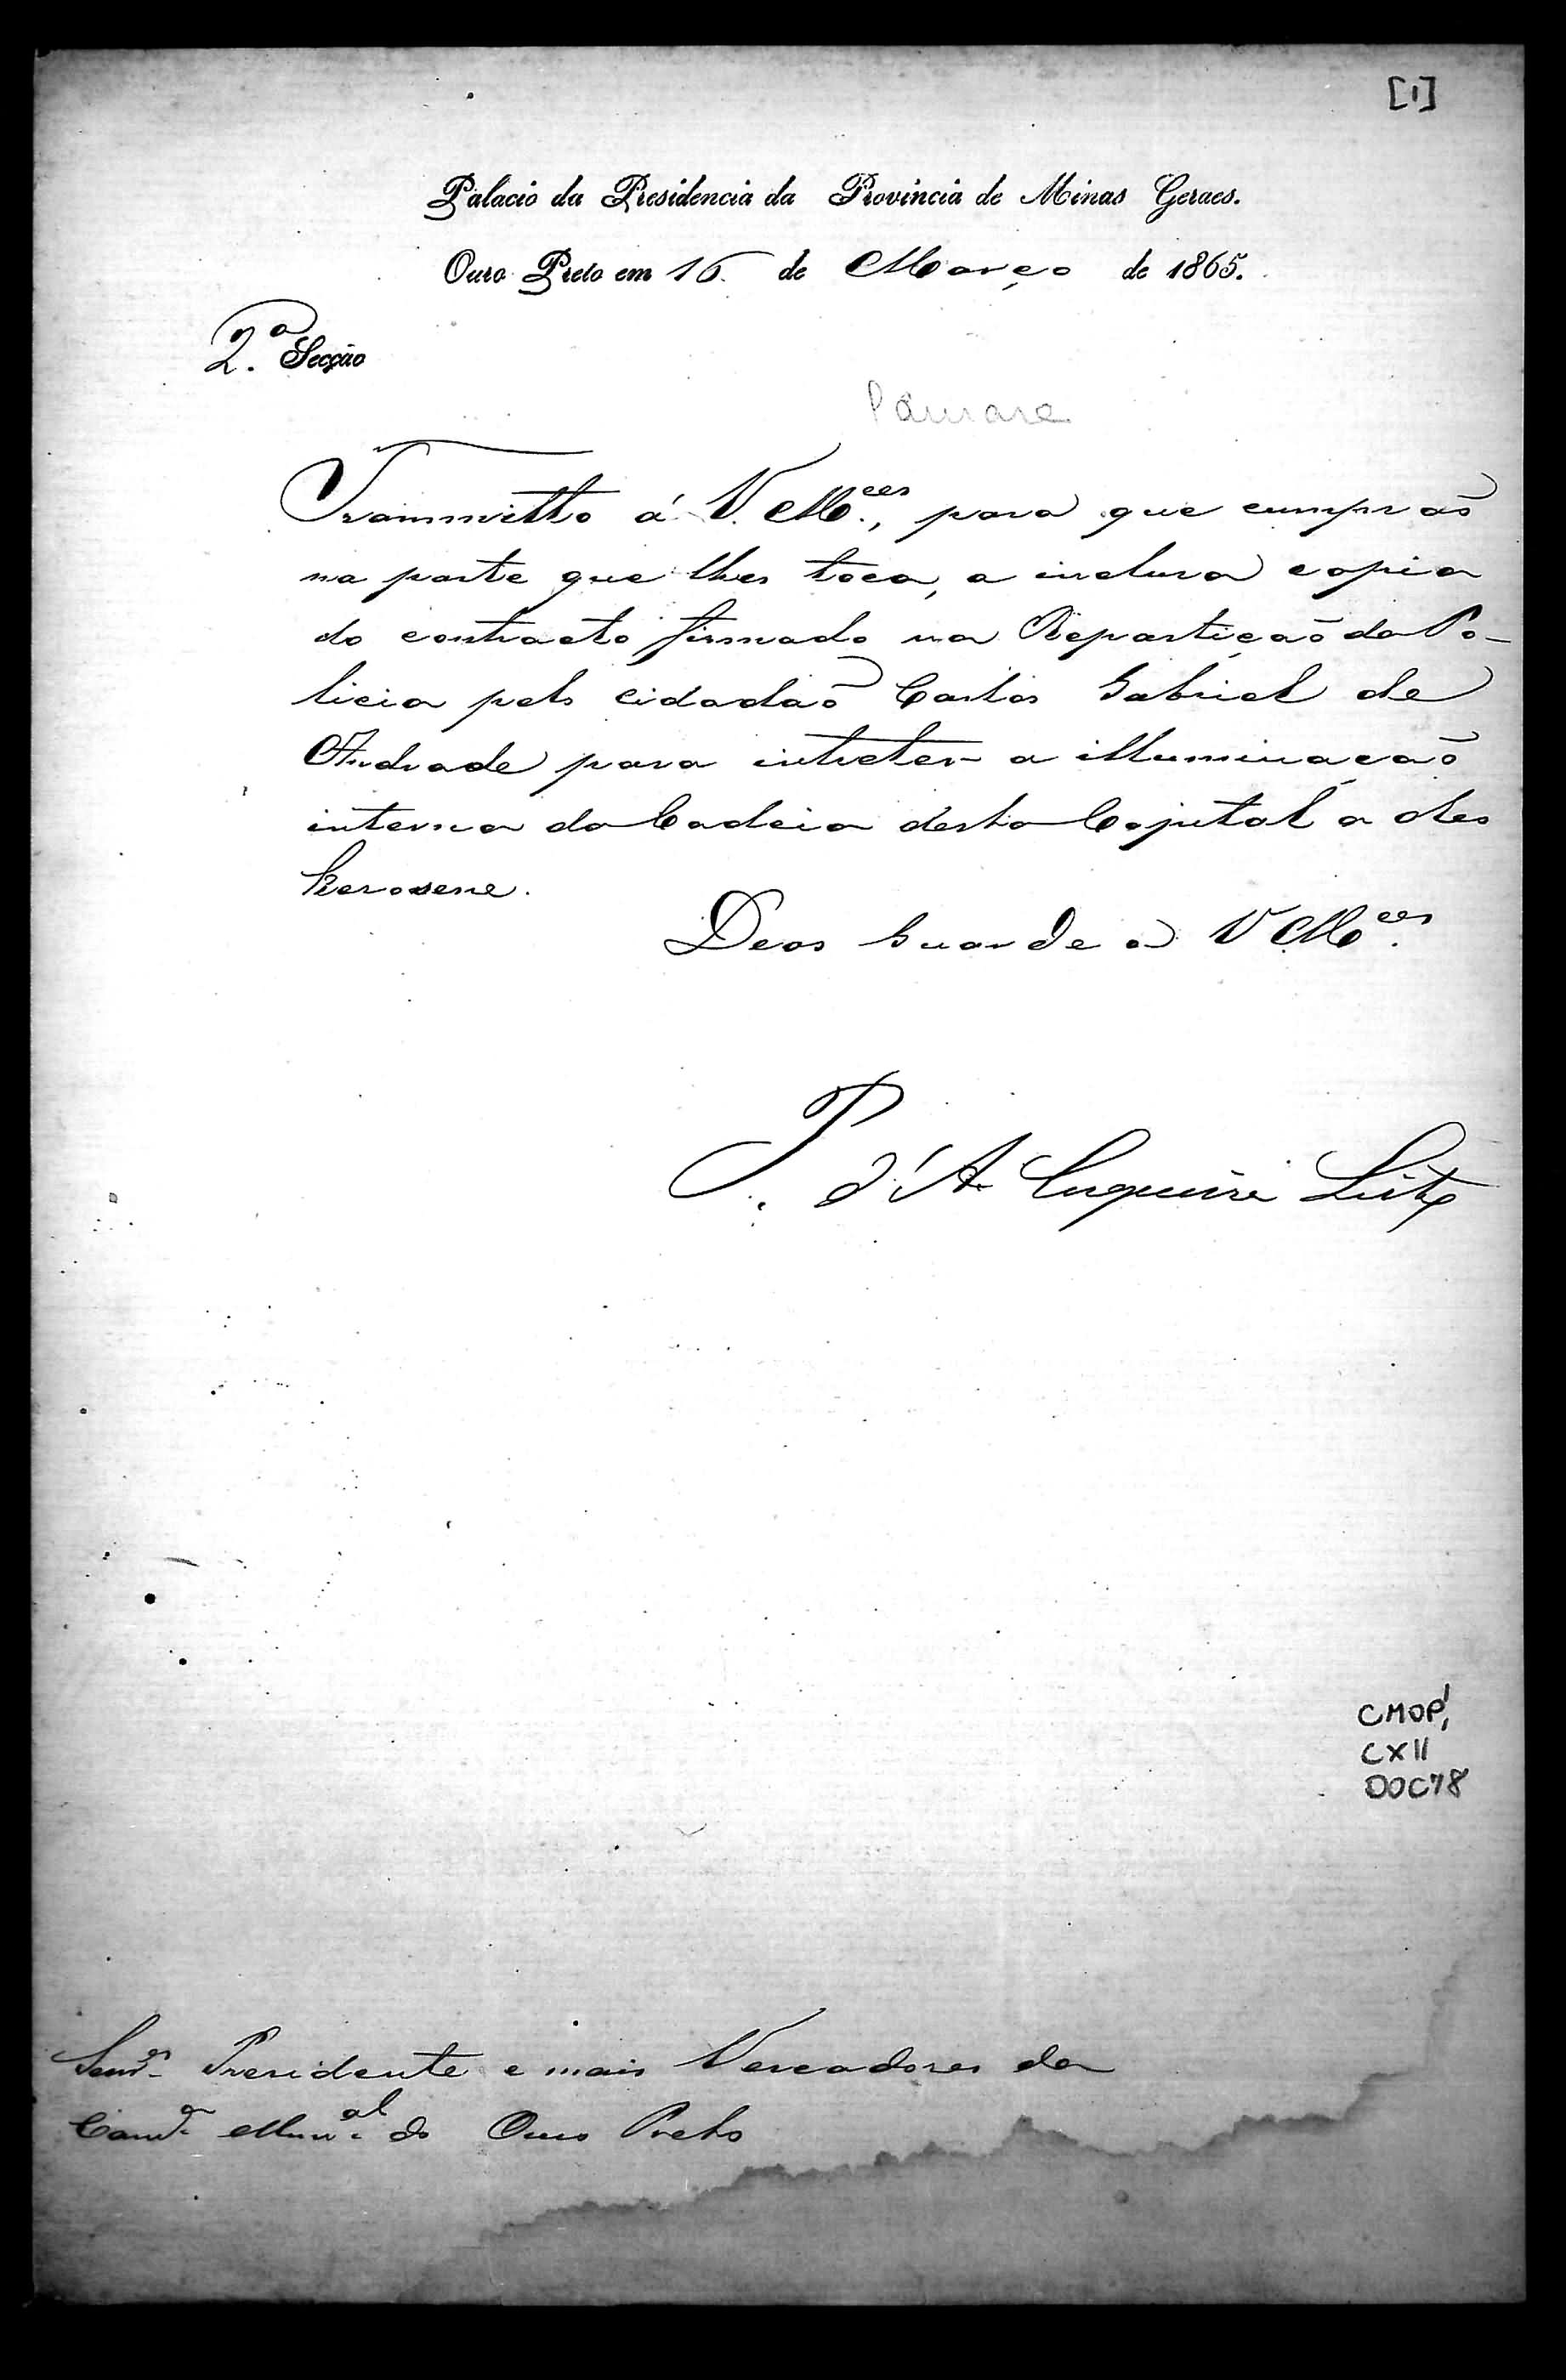 [1]
Palacio da Presidencia da Provincia de Minas Geraes.
Ouro Preto em 16 de Março de 1865.
2.ª Secção
Camara
Transmitto á V. M.ces, para que cumprão
na parte que lhes toca, a inclusa copia
do contracto firmado na Repartição da Po-
licia pelo cidadão Carlos Gabriel de
Andrade para entreter a illuminação
interna da Cadeia desta Capital a oleo
kerosene.
Deos Guarde a V M.ces
P. d'A Cerqueira Leite
CMOP
CX11
DOC78
Senr.es Presidente e mais Vereadores da
Camr.a Mun.al do Ouro Preto